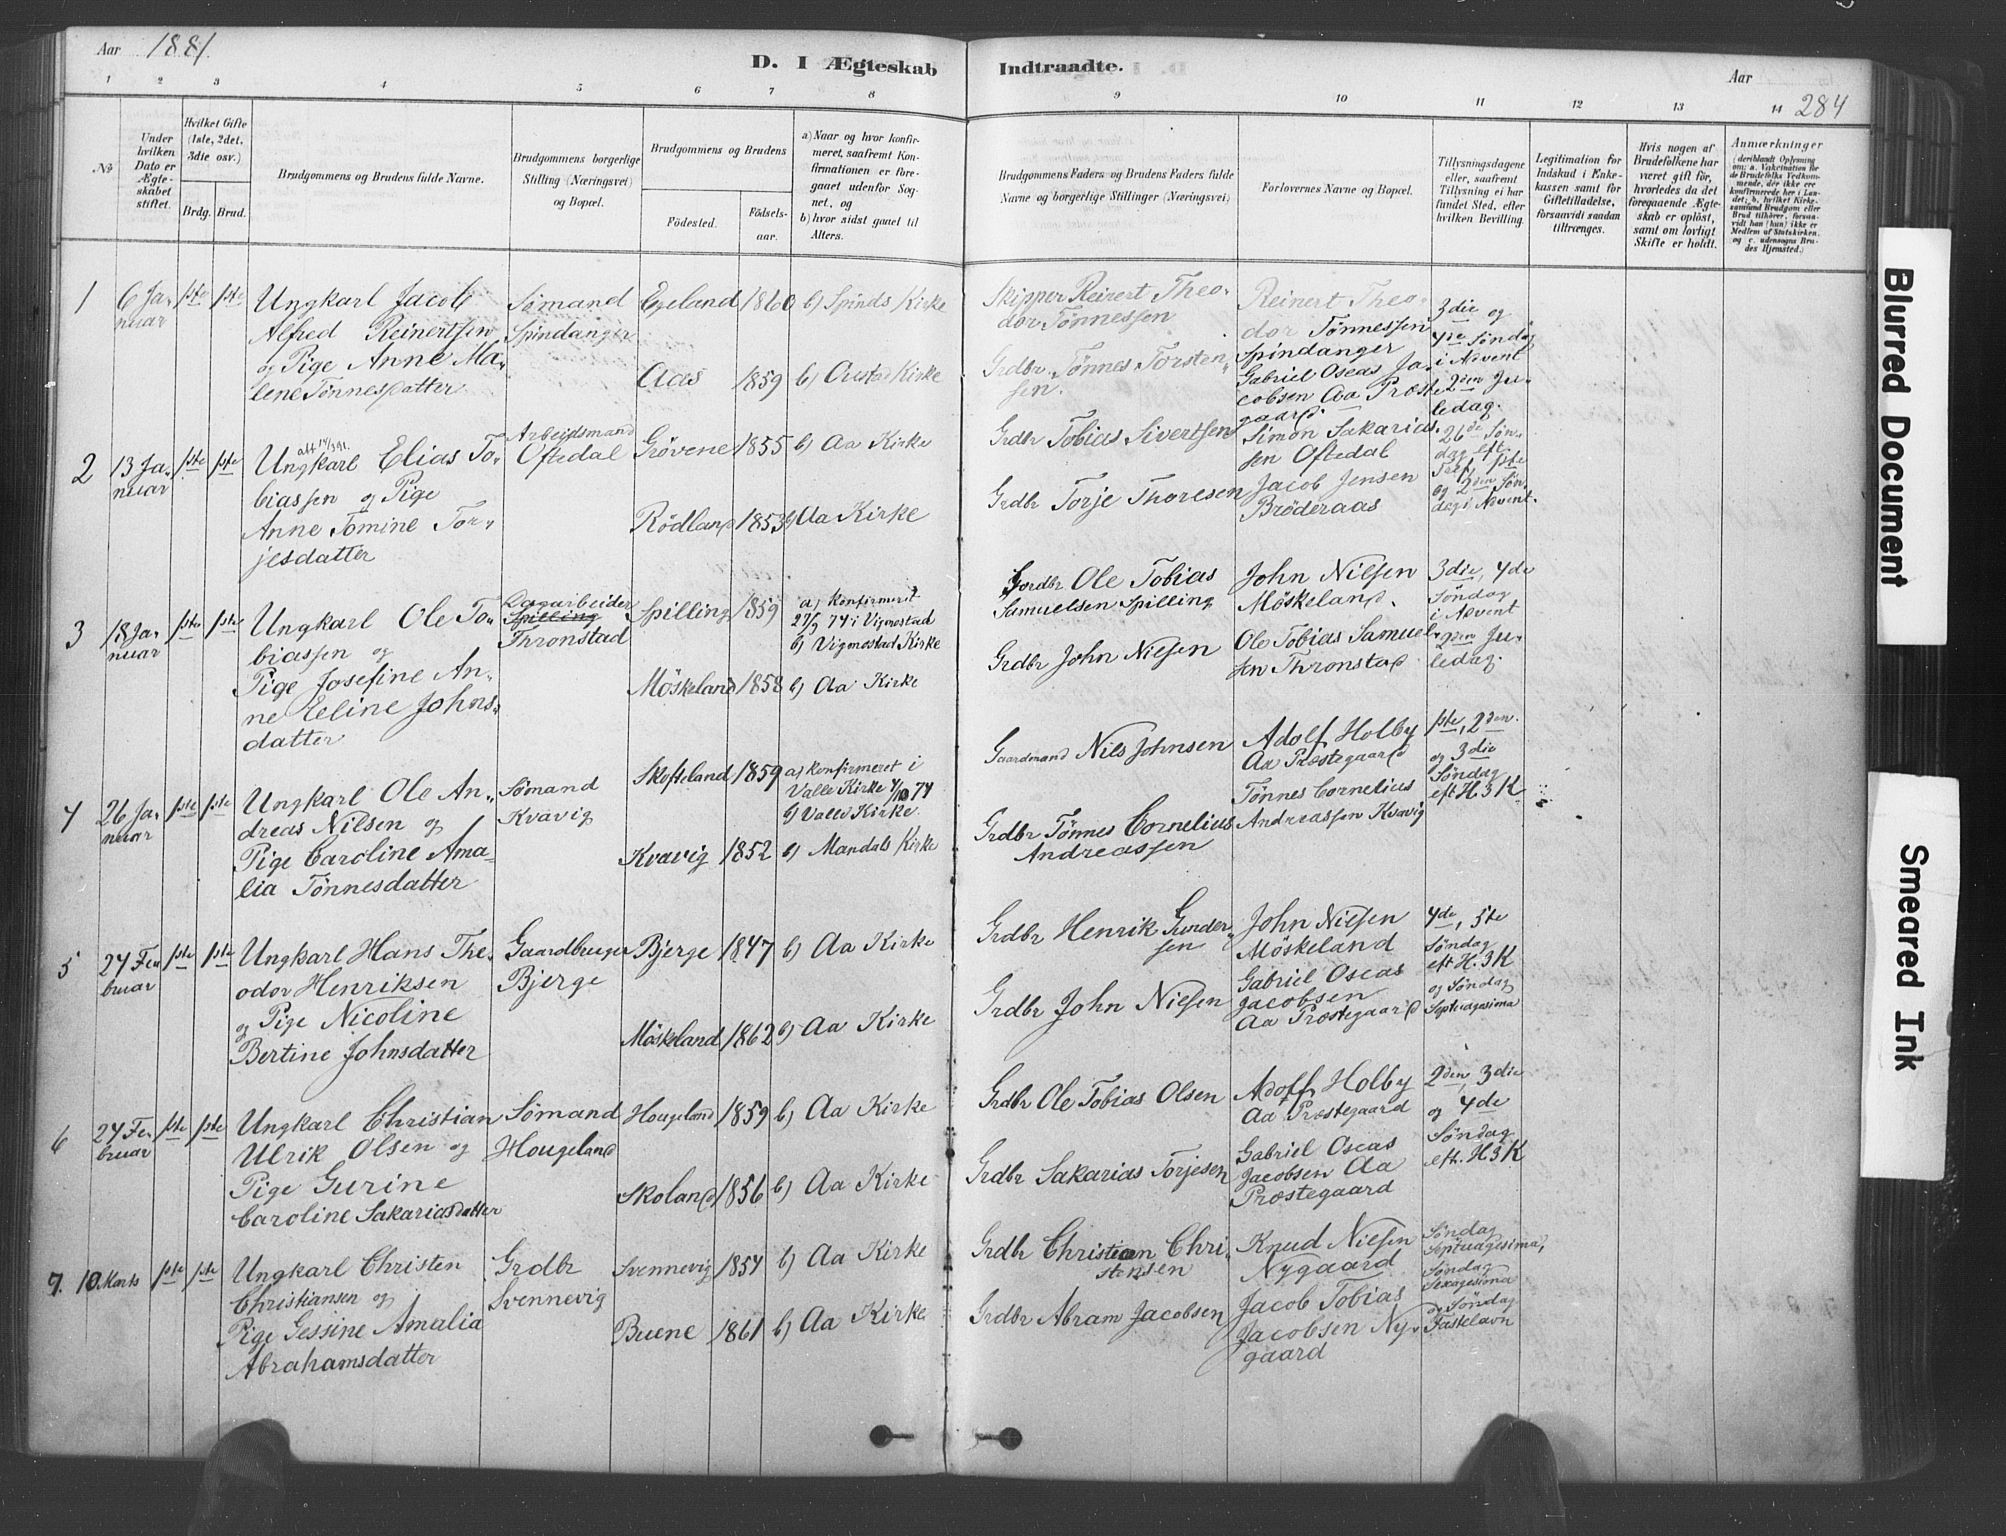 Aar 1881.
D. I Ægteskab Indtraadte.
Aar
284
1 2 3 4 5 6 7 8 9 10 11 12 13 14
No
Under hvilken Dato er Ægteskabet stiftet.
Hvilket Gifte (1ste, 2det, 3die osv.)
Brdg. Brud.
Brudgommens og Brudens fulde Navne.
Brudgommens borgerlige Stilling (Næringsvei) og Bopæl.
Brudgommens og Brudens
Födested. Födselsaar.
a) Naar og hvor konfirmeret, saafremt Konfirmationen er foregaaet udenfor Sognet, og
b) hvor sidst gaaet til Alters.
Brudgommens Faders og Brudens Faders fulde Navne og borgerlige Stillinger (Næringsvei)
Forlovernes Navne og Bopæl.
Tillysningsdagene eller, saafremt Tillysning ei har fundet Sted, efter hvilken Bevilling.
Legitimation for Indskud i Enkekassen samt for Giftetilladelse, forsaavidt saadan tiltrænges.
Hvis nogen af Brudefolkene har været gift før, hvorledes da det foregaaende Ægteskab er oplöst, samt om lovligt Skifte er holdt.
Anmærkninger
(deriblandt Oplysning om: a. Vakcination for de Brudefolks Vedkommende, der ikke ere konfirmerede her i Landet; b. hvilket Kirkesamfund Brudgom eller Brud tilhörer, forsaavidt han (hun) ikke er Medlem af Statskirken, og c. udensogns Brudes Hjemsted.)
1 6 Januar 1ste 1ste
Ungkarl Jacob
Alfred Reinertsen
og Pige Anne Ma-
lene Tønnesdatter
Sømand
Spindanger
Egeland 1860 b) Spinds Kirke
Aas 1859 b) Kirke
Skipper Reinert Theo-
dor Tønnessen
Grdbr. Tønnes Torsten-
sen.
Reinert Theo-
dor Tønnessen
Spindanger
Gabriel Oseas Ja-
cobsen Aa Præste
gaard.
3die og
4de Søndag
i Advent
2den Ju-
ledag.
2 13 Januar 1ste 1ste
Ungkarl Elias To-
biassen og Pige
Anne Tomine Tor-
jesdatter
Arbeidsmand
Oftedal
Grövene 1855 b) Aa Kirke
Rödland 1853 b) Aa Kirke
Grdbr Tobias Sivertsen
Grdbr Torje Thoresen
Simon Sakarias-
sen Oftedal
Jacob Jensen
Bröderaas
26de Søn-
dag eft
Tref. 1ste
og 2den Søn-
dag i Advent.
3 18 Januar 1ste 1ste
Ungkarl Ole To-
biassen og
Pige Josefine An-
ne Eline Johns-
datter
Dagarbeider
Spilling
Thronstad
Spilling 1859 a) Konfirmeret
27/9 74 i Vigmostad
b) Vigmostad Kirke
Möskeland 1858 b) Aa Kirke
Gordbr Ole Tobias
Samuelsen Spilling
Grdbr John Nilsen
John Nilsen
Möskeland.
Ole Tobias Samuel-
sen Thronstad
3die, 4de
Søndag
i Advent
2den Ju-
ledag.
4 26 Januar 1ste 1ste
Ungkarl Ole An-
dreas Nilsen og
Pige Caroline Ama-
lia Tønnesdatter
Sømand
Kvavig
Skofteland 1859 a) Konfirmeret i
Valle Kirke 4/10 74
b) Valle Kirke.
Kvavig 1852 b) Mandals Kirke
Gaardmand Nils Johnsen
Grdbr Tönnes Cornelius
Andreassen
Adolf Holby
Aa Præstegaard
Tönnes Cornelius
Andreassen Kvavig
1ste, 2den
og 3die
Søndag
eft H. 3 K.
5 24 Februar 1ste 1ste
Ungkarl Hans The-
odor Henriksen
og Pige Nicoline
Bertine Johnsdatter
Gaardbruger
Bjerge
Bjerge 1847 b) Aa Kirke
Möskeland 1862 b) Aa Kirke
Grdbr Henrik Gunder-
sen
Grdbr John Nielsen
John Nielsen
Möskeland
Gabriel Oseas
Jacobsen
Aa Præstegaard
4de, 5te
Søndag
eft H. 3 K
og Søndag
Septuagesima
6 24 Februar 1ste 1ste
Ungkarl Christian
Ulrik Olsen og
Pige Gurine
Caroline Sakariasdatter
Sømand
Hougeland
Hougeland 1859 b) Aa Kirke
Skoland 1856 b) Aa Kirke
Grdbr Ole Tobias Olsen
Grdbr Sakarias Torjesen
Adolf Holby
Aa Præstegaard
Gabriel Oseas
Jacobsen Aa
Præstegaard
2den, 3die
og 4de
Søndag
eft. H 3 K
7. 10 Marts 1ste 1ste
Ungkarl Christen
Christiansen og
Pige Gessine Amalia
Abrahamsdatter
Grdbr
Svennevig
Svennevig 1854 b) Aa Kirke
Buene 1861 b) Aa Kirke
Grdbr Christian Chri-
stensen
Grdbr Abram Jacobsen
Knud Nielsen
Nygaard
Jacob Tobias
Jacobsen Ny-
gaard
Søndag
Septuagesima,
Søndag
Sexagesima
og Søndag
Fastelavn
Blurred Document
Smeared Ink